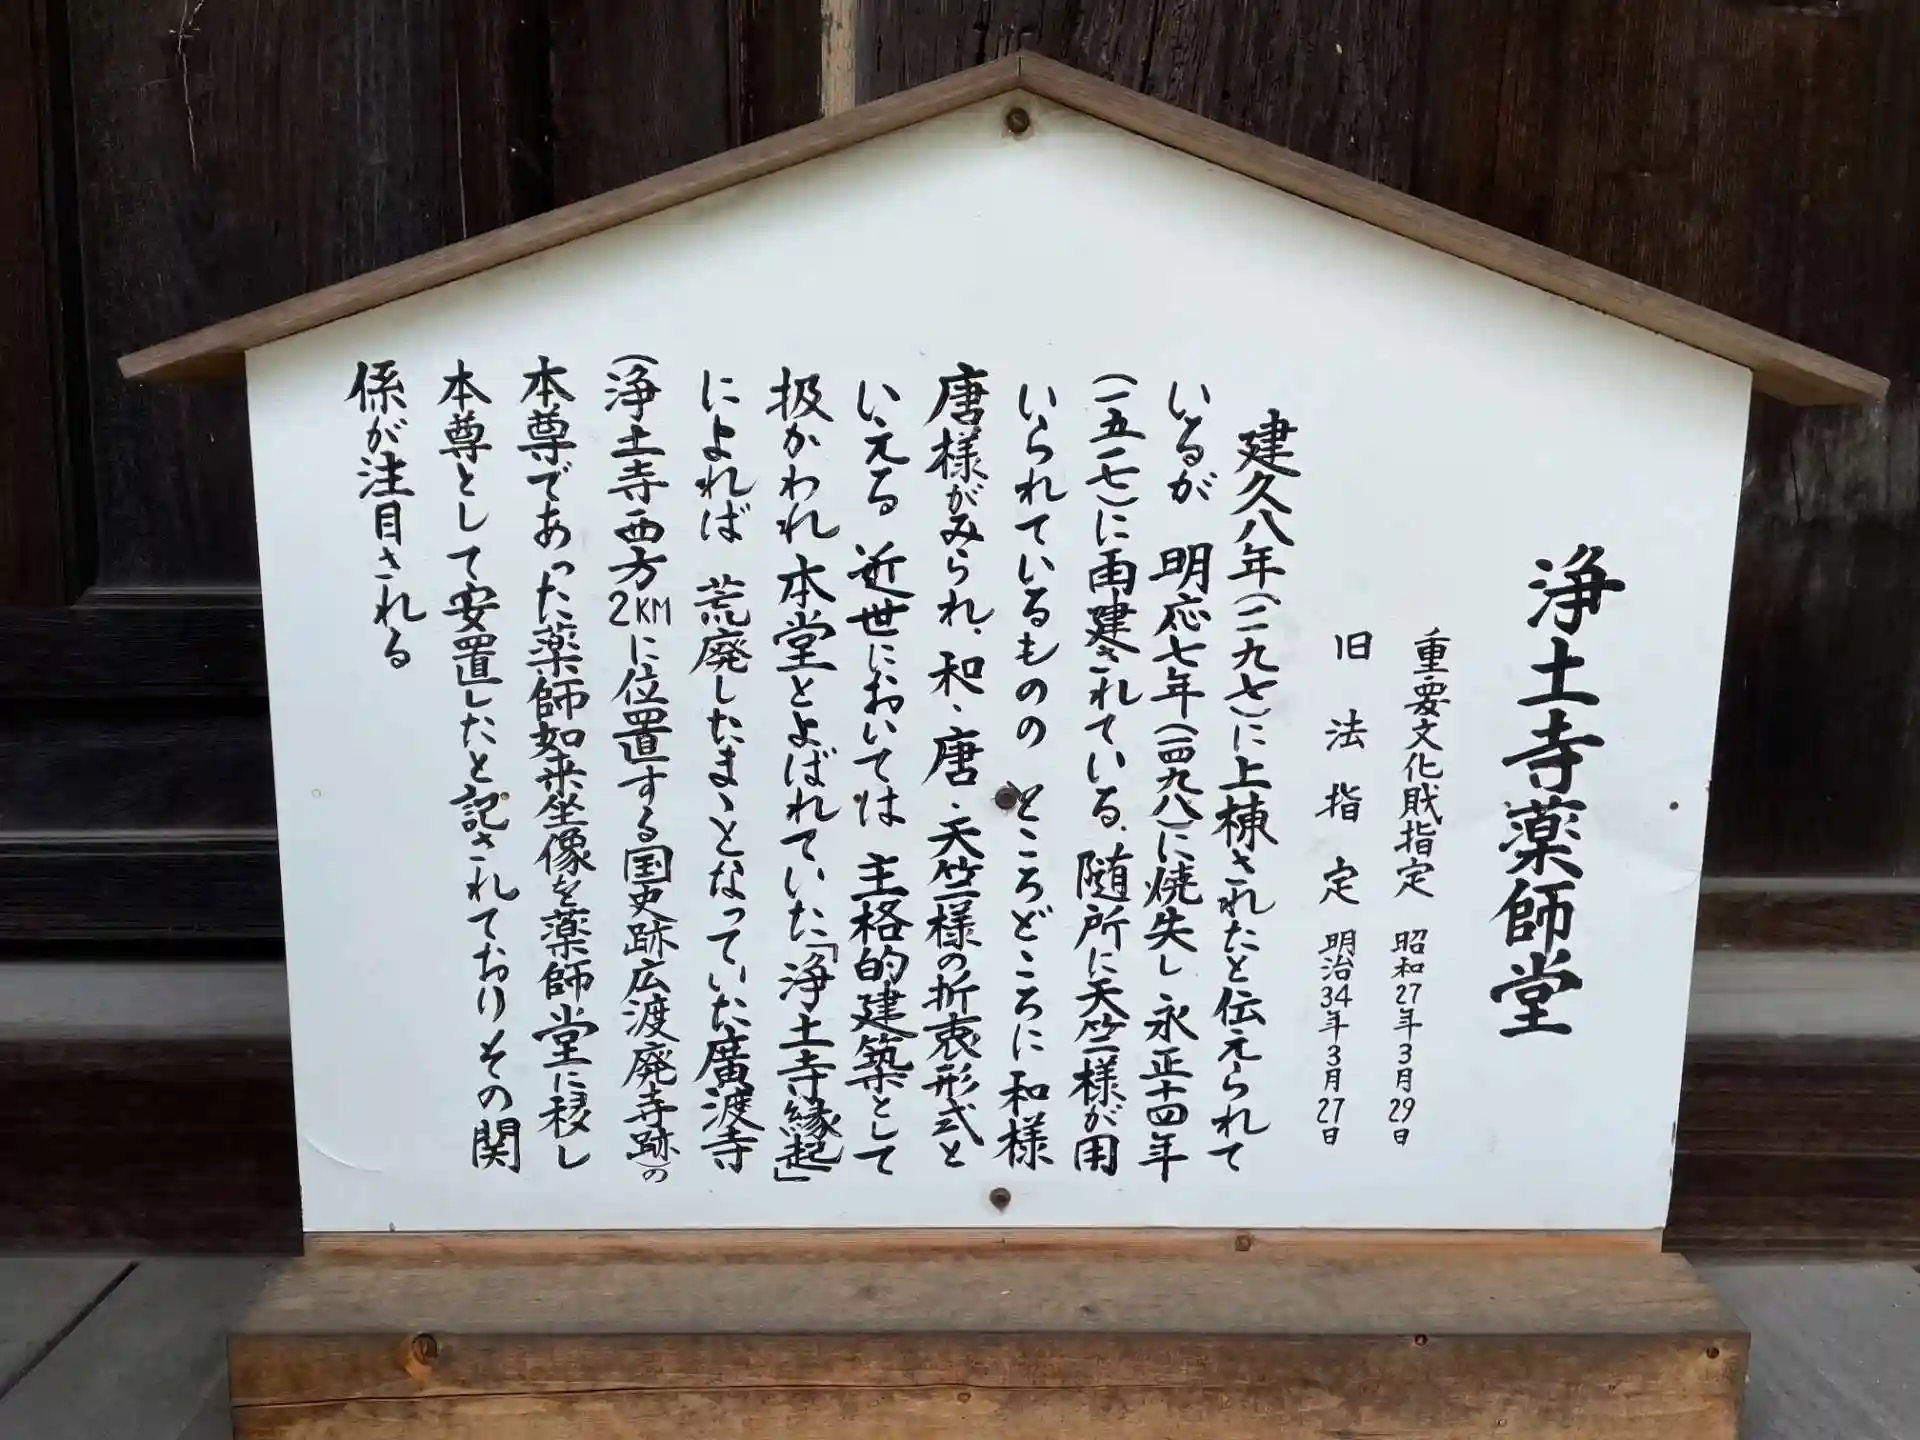 浄土寺薬師堂
重要文化財指定 昭和27年3月29日
旧法指定 明治34年3月27日
建久八年(一一九七)に上棟されたと伝えられて
いるが 明応七年(一四九八)に焼失し 永正十四年
(一五一七)に再建されている、随所に天竺様が用
いられているものの ところどころに和様
唐様がみられ、和、唐、天竺様の折衷形式と
いえる 近世においては 主格的建築として
扱かわれ本堂とよばれていた「浄土寺縁起」
によれば 荒廃したまゝとなっていた廣渡寺
(浄土寺西方2KMに位置する国史跡広渡廃寺跡)の
本尊であった薬師如来坐像を薬師堂に移し
本尊として安置したと記されておりその関
係が注目される